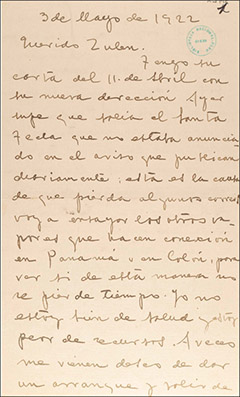 3 de Mayo de 1922
Querido Zulen:
Tengo su
carta del 11 de Abril con
su nueva dirección. Ayer
supe que salía el Santa
Tecla que no estaba anuncia
do en el aviso que publican
diariamente; esta es la causa
de que pierda algunos correos
voy a ensayar los otros va-
pores que hacen conexión
en Panamá o en Colón, para
ver si de esta manera no
se pierde tiempo. Yo no
estoy bien de salud y estoy
peor de recursos. A veces
me vienen deseos de dar
un arranque y salir de